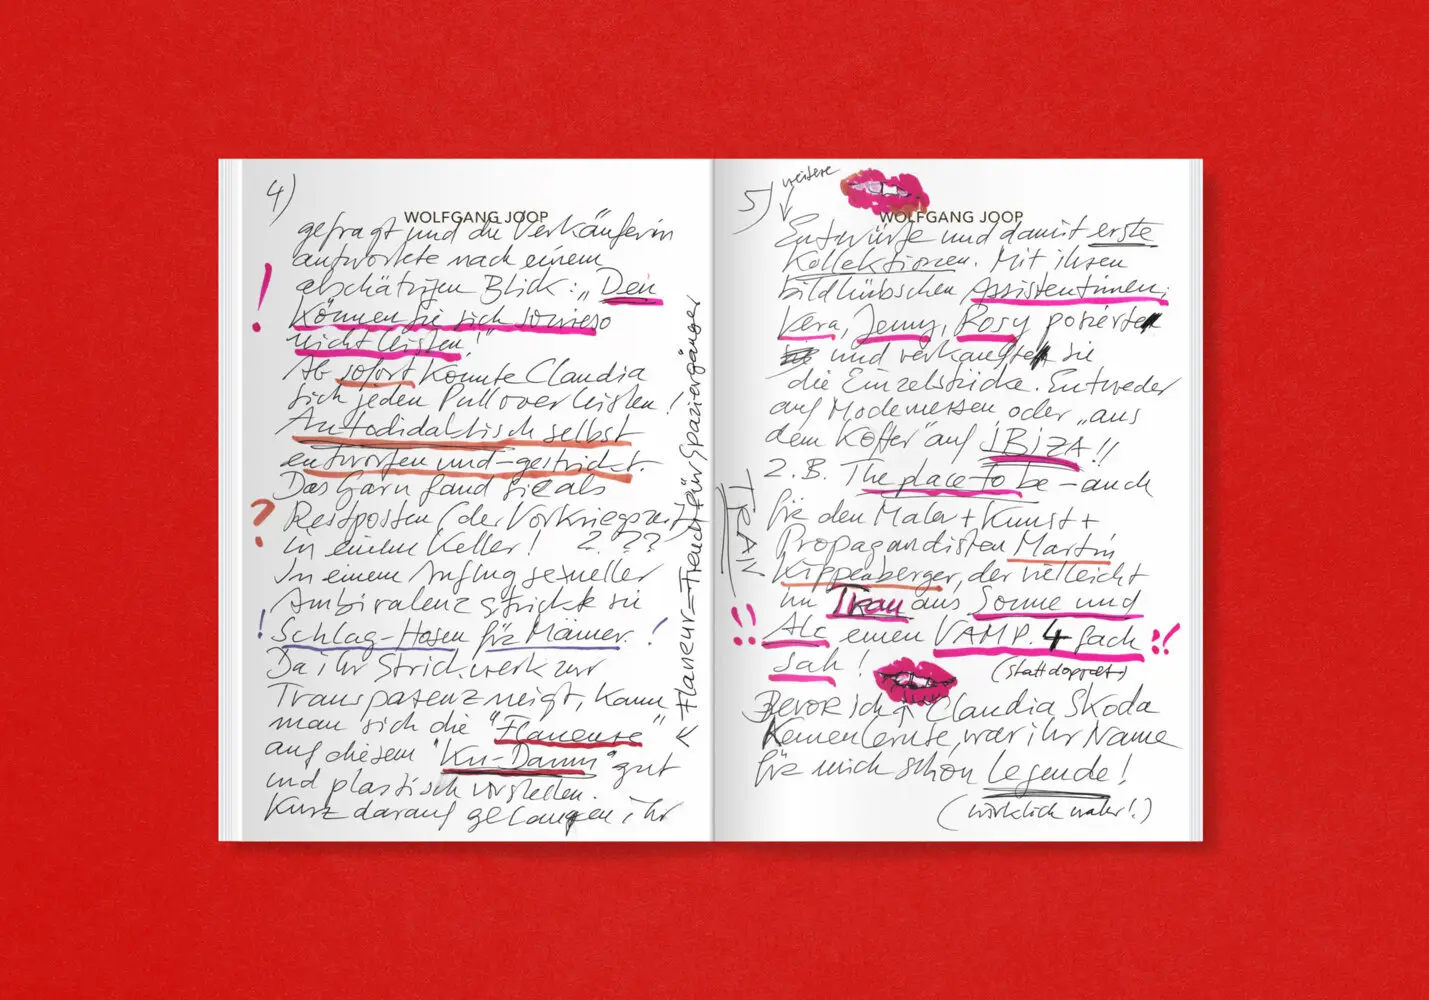 4)
WOLFGANG JOOP
gefragt und die Verkäuferin
antwortete nach einem
abschätzigen Blick: „Den
können Sie sich sowieso
nicht leisten!"
Ab sofort konnte Claudia
sich jeden Pullover leisten!
Autodidaktisch selbst
entworfen und – gestrickt.
Das Garn fand sie als
Restposten (der Vorkriegszeit)
in einem Keller! ? ??)
In einem Anflug sexueller
Ambivalenz strickte sie
Schlag-Hosen für Männer.!
Da ihr Strickwerk zur
Transparenz neigt, kann
man sich die "Flaneuse"
auf diesem "Ku-Damm" gut
und plastisch vorstellen.
Kurz darauf gelangen ihr
← Flaneur = Freud für Spaziergänger
5) weitere
WOLFGANG JOOP
Entwürfe und damit erste
Kollektionen. Mit ihren
bildhübschen Assistentinnen,
Vera, Jenny, Rosy posierte
und verkaufte sie
die Einzelstücke. Entweder
auf Modemessen oder „aus
dem Koffer" auf iBiZA!!
Z.B. The place to be – auch
für den Maler + Kunst +
Propagandisten Martin
Kippenberger, der vielleicht
im Tran aus Sonne und
Alc einen VAMP. 4 fach
(statt doppelt)
sah!
TRAN
Bevor ich Claudia Skoda
kennenlernte, war ihr Name
für mich schon Legende!
(wirklich wahr!)